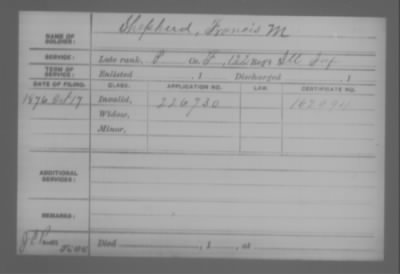 NAME OF SOLDIER: Shepherd, Francis M
SERVICE: Late rank, P Co. F, 122 Reg't Ill Inf
TERM OF SERVICE: Enlisted , 1 Discharged , 1
DATE OF FILING. CLASS. APPLICATION NO. LAW. CERTIFICATE NO.
1876 Oct 17 Invalid, 226730
Widow,
Minor,
ADDITIONAL SERVICES:
REMARKS:
Died , 1 , at